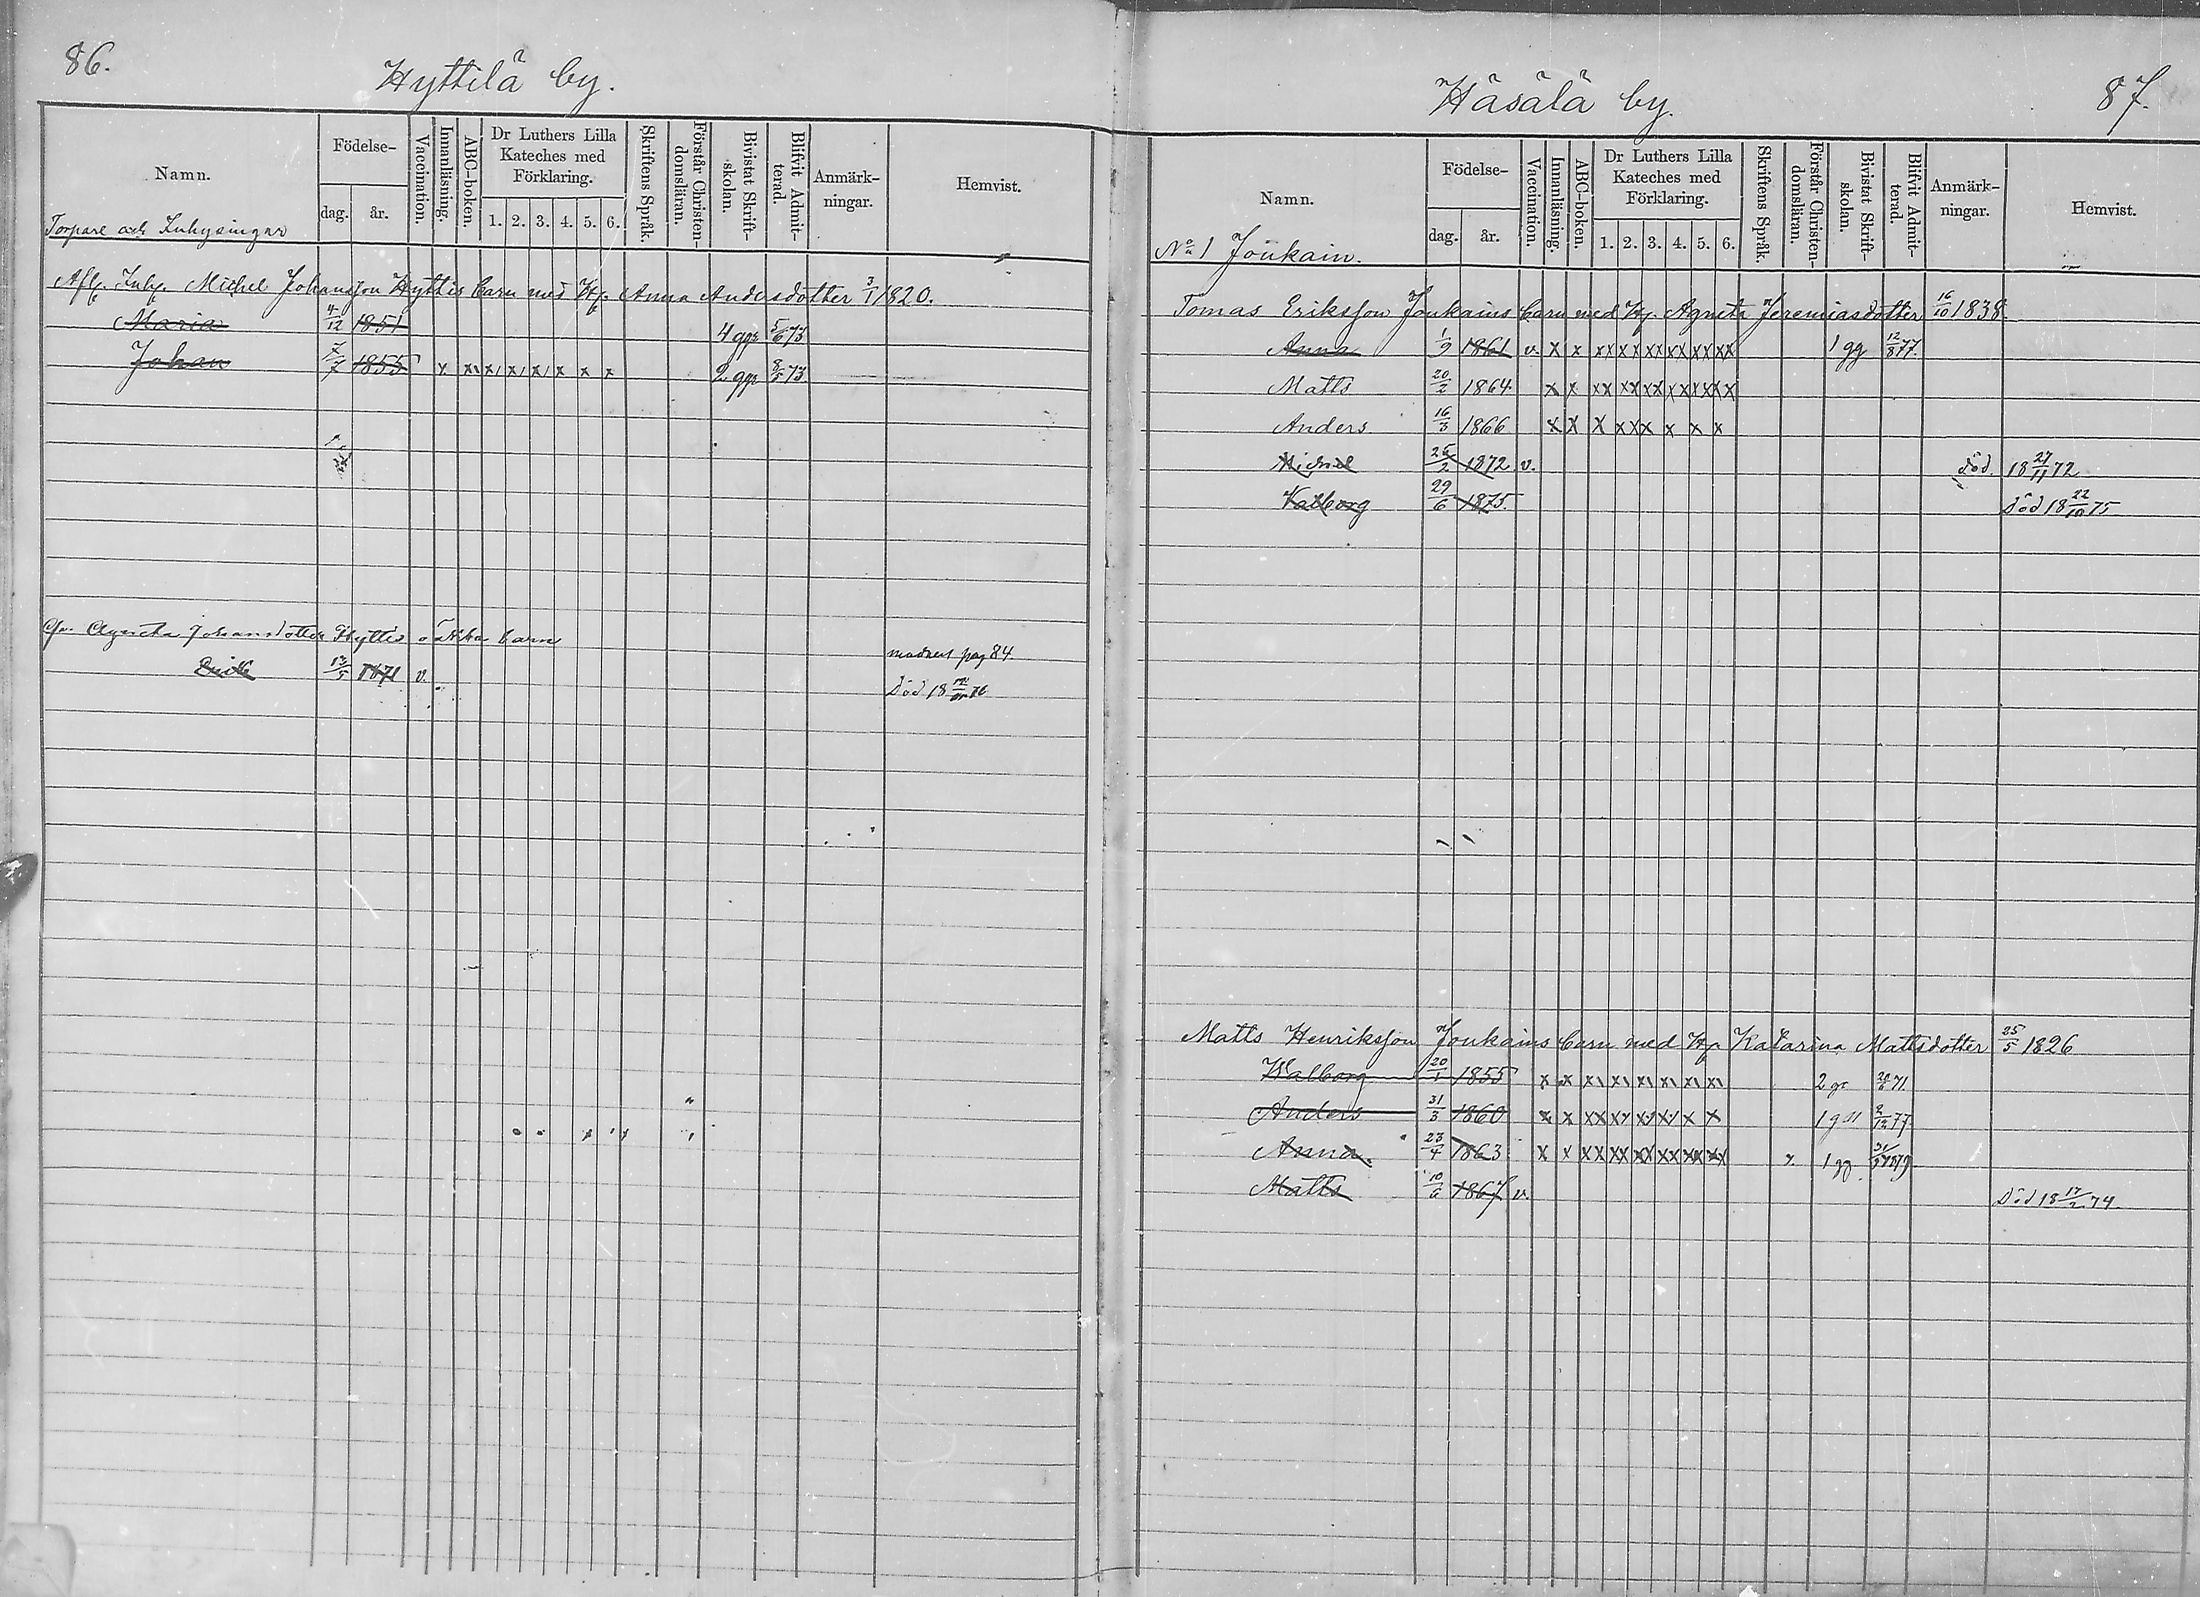 86.
Hyttilä by.
Namn.
Födelse-
dag.
år.
Vaccination.
Innanläsning.
ABC-boken.
Dr Luthers Lilla
Kateches med
Förklaring.
1. 2. 3. 4. 5. 6.
Skriftens Språk.
Förstår Christen-
domsläran.
Bivistat Skrift-
skolan.
Blifvit Admit-
terad.
Anmärk-
ningar.
Hemvist.
Torpare och Inhysingar
Afl. Inh. Michel Johansson Hyttis barn med H. Anna Andersdotter 3/1 1820.
Maria 4/12 1851 4 ggr 5/6 73
Johan 7/7 1855 x x x x x x x x 2 ggr 73
Agneta Johansdotter Hyttis oäkta barn
modren pag 84.
1871 v. Död 18
87.
Häsälä by.
Namn.
Födelse-
dag.
år.
Vaccination.
Innanläsning.
ABC-boken.
Dr Luthers Lilla
Kateches med
Förklaring.
1. 2. 3. 4. 5. 6.
Skriftens Språk.
Förstår Christen-
domsläran.
Bivistat Skrift-
skolan.
Blifvit Admit-
terad.
Anmärk-
ningar.
Hemvist.
No 1 Joukain.
Tomas Eriksson Joukains barn med H. Agneta Jeremiasdotter 16/10 1838
Anna 1/9 1861 v. x x xx xx xx xx xx xx 1 gg 12/8 77.
Matts 20/2 1864 x x xx xx xx xx xx xx
Anders 16/3 1866 x x x xx x x x x
Michel 25/2 1872 v. död. 18 27/11 72
Valborg 29/6 1875. död 18 22/10 75
Matts Henriksson Joukains barn med H. Katarina Mattsdotter 25/5 1826
Walborg 20/1 1855 x x x x x x x x 2 gr 71.
Anders 31/3 1860 x x xx x x x x x 1 77
Anna. 23/4 1863 x x xx xx xx xx xx xx x 1 gg
Matts 10/6 1867 v. Död 18 17/2 74.